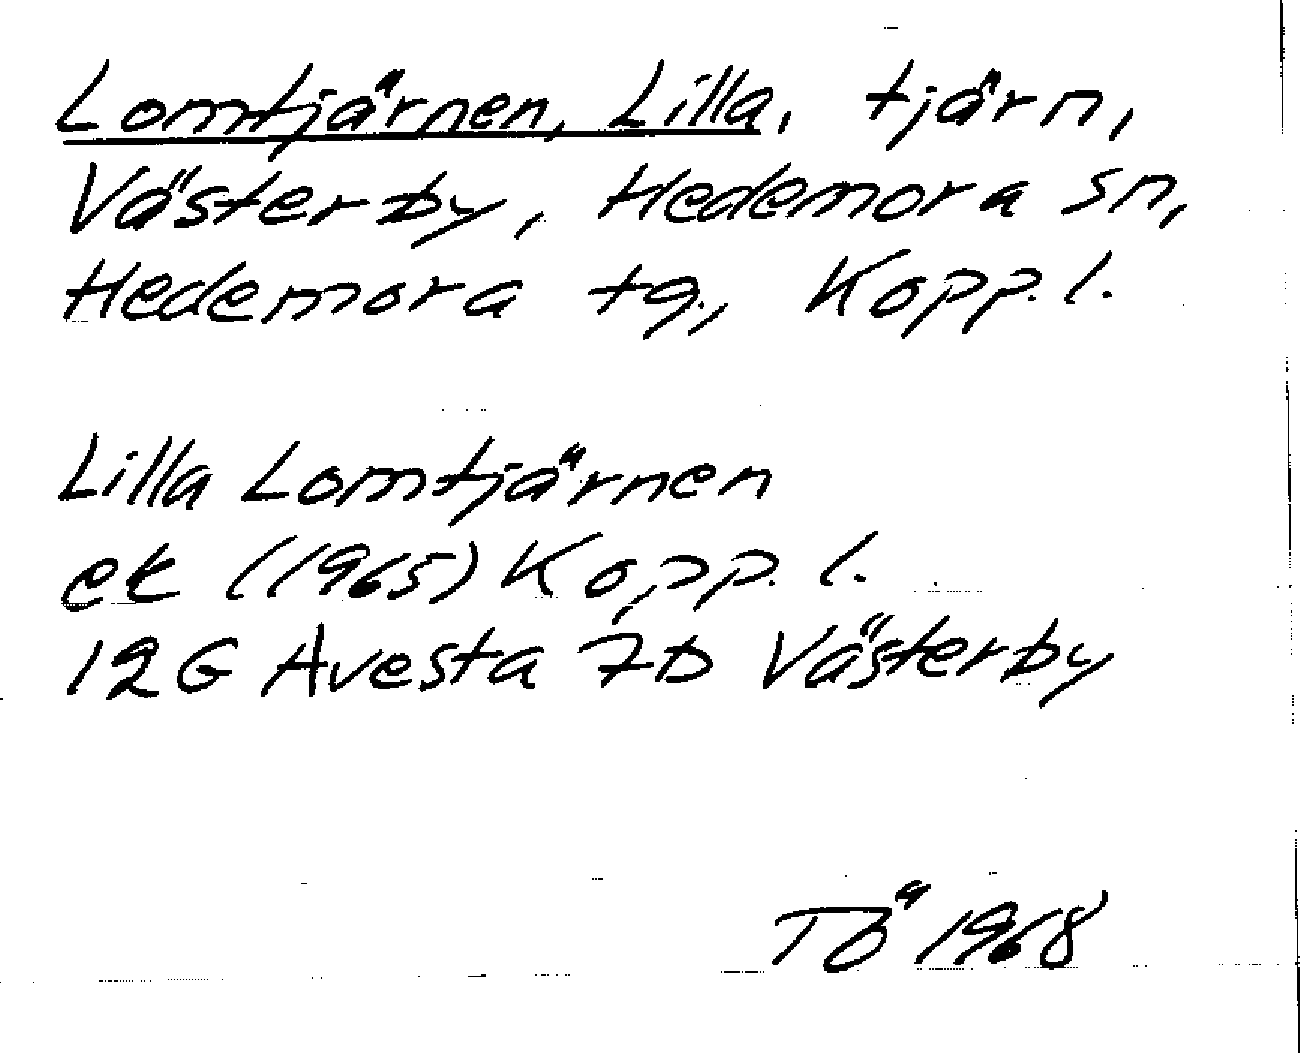 Lomtjärnen, Lilla, tjärn,
Västerby, Hedemora sn,
Hedemora tg., Kopp. l.
Lilla Lomtjärnen
ek (1965) Kopp. l.
12G Avesta 7D Västerby
TÖ 1968